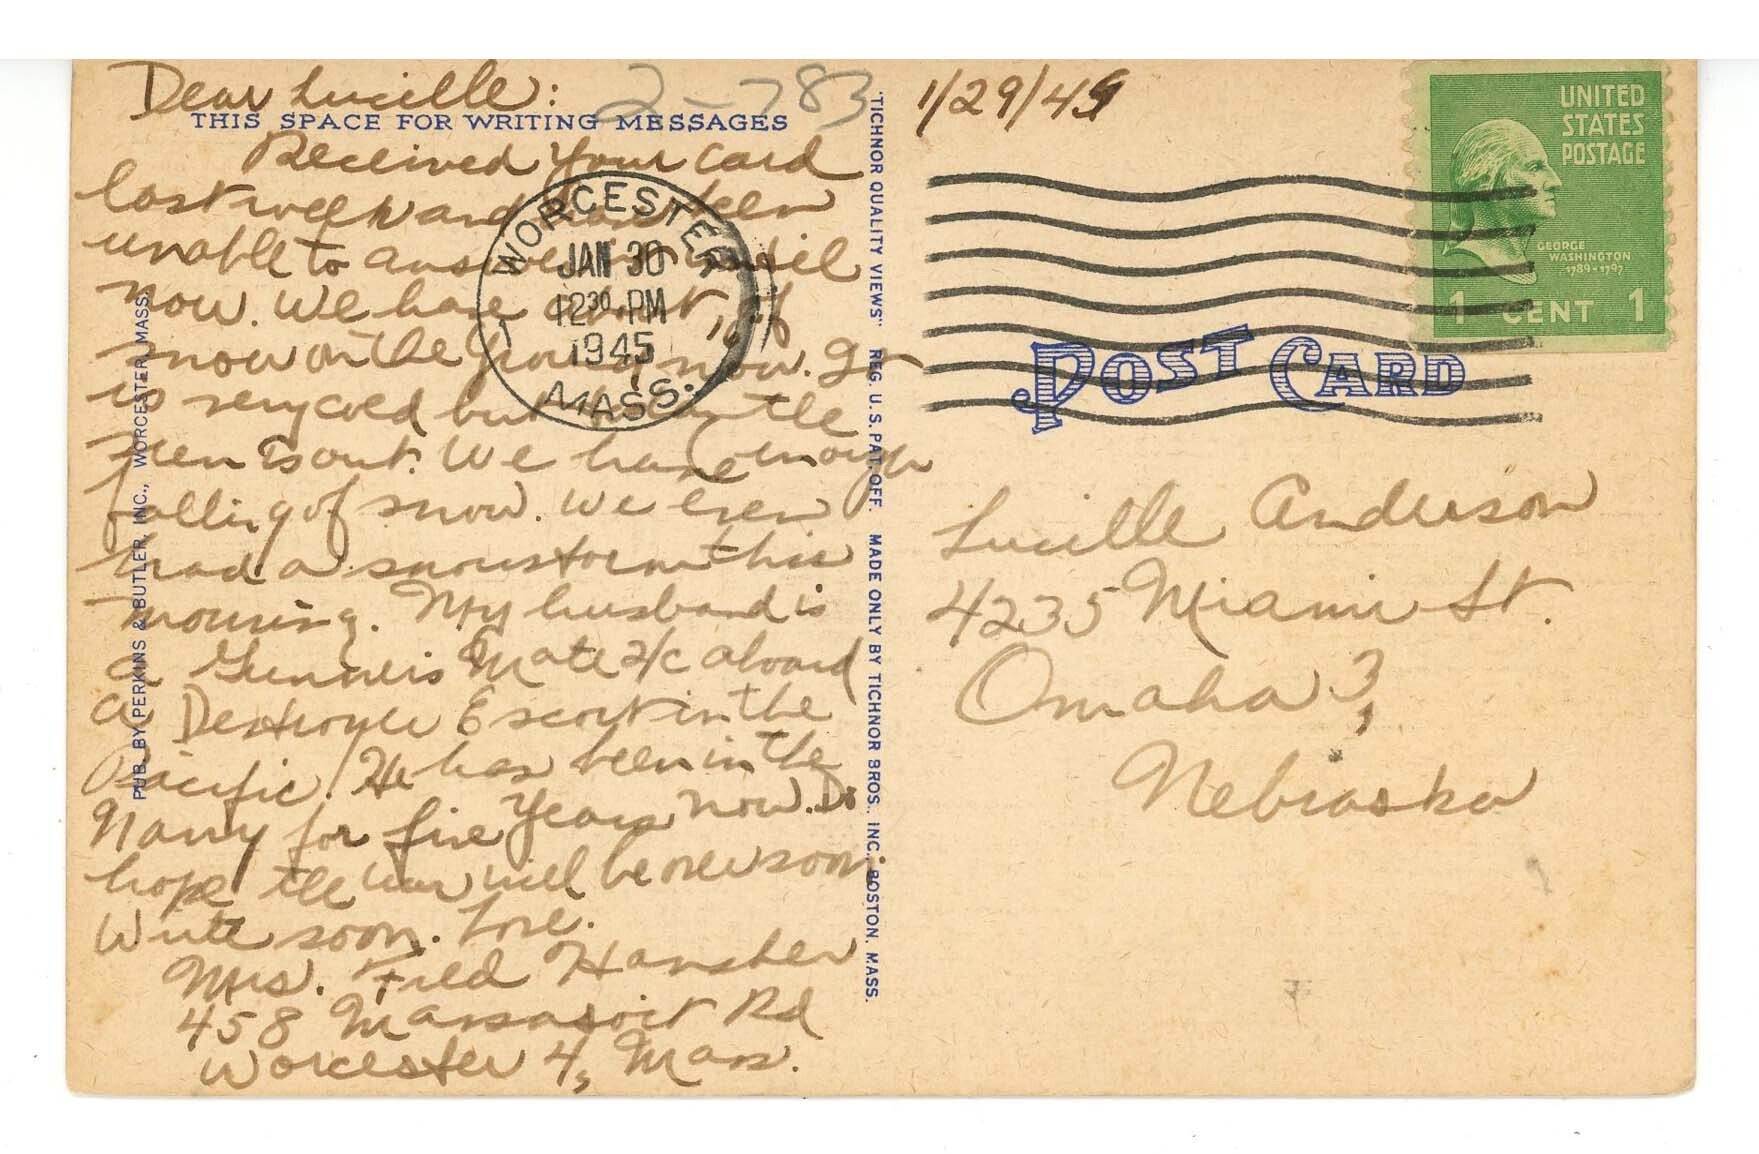 Dear Lucille:
2-783
THIS SPACE FOR WRITING MESSAGES
Received your card
last week and have been
unable to answer until
now. We have a lot of
snow on the ground now. It
is very cold but the
sun is out. We have enough
falling of snow. We even
had a snowstorm this
morning. My husband is
a Gunner's Mate 2/c aboard
a Destroyer Escort in the
Pacific. He has been in the
Navy for five years now. Do
hope the war will be over soon.
Write soon. Love.
Mrs. Fred Hansher
458 Massasoit Rd
Worcester 4, Mass.
WORCESTER
JAN 30
12 30 PM
1945
MASS.
PUB. BY PERKINS & BUTLER, INC., WORCESTER, MASS.
"TICHNOR QUALITY VIEWS" REG. U. S. PAT. OFF. MADE ONLY BY TICHNOR BROS., INC., BOSTON, MASS.
1/29/45
UNITED
STATES
POSTAGE
GEORGE
WASHINGTON
1789-1797
1 CENT 1
POST CARD
Lucille Anderson
4235 Miami St.
Omaha 3,
Nebraska